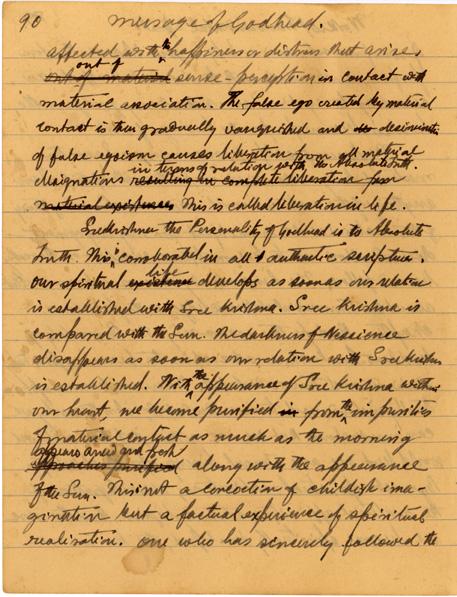 90 Message of Godhead.
affected with the happiness or distress that arise
out of
out of material sense-perception in contact with
material association. The false ego created by material
contact is thus gradually vanquished and
of false egoism causes liberation from all material
in terms of relation with the Absolute Truth.
designations resulting in complete liberation from
material existences This is called liberation in life.
Sreekrishna the Personality of Godhead is the Absolute
Truth. This is corroborated in all authentic scripture.
life
our spiritual existence develops as soon as our relation
is established with Sree Krishna. Sree Krishna is
compared with the Sun. The darkness of Nescience
disappears as soon as our relation with Sree Krishna
is established. With the appearance of Sree Krishna within
our heart, we become purified in from the impurities
of material contact as much as the morning
appears anew and fresh
approaches purified along with the appearance
of the Sun. This is not a concoction of childish ima-
gination but a factual experience of spiritual
realisation. One who has sincerely followed the